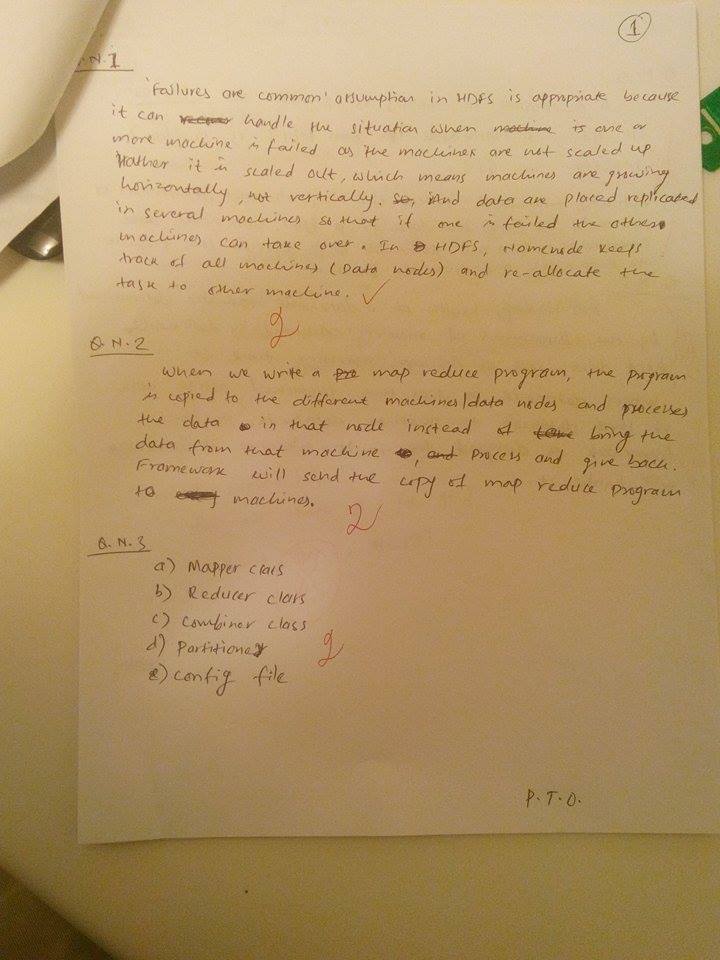 1
.N.1
'Failures are common' assumption in HDFS is appropriate because
it can handle the situation when is one or
more machine is failed as the machines are not scaled up
Rather it is scaled out, which means machines are growing
horizontally, not vertically. so, And data are placed replicated
in several machines so that if one is failed the other
machines can take over. In HDFS, Namenode keeps
track of all machines (Data nodes) and re-allocate the
task to other machine. ✓
2
Q.N.2
When we write a pro map reduce program, the program
is copied to the different machines/data nodes and processes
the data in that node instead of take bring the
data from that machine, and process and give back.
Framework will send the copy of map reduce program
to machines.
2
Q.N.3
a) Mapper class
b) Reducer class
c) Combiner class
d) Partitioner
2
e) config file
P.T.O.